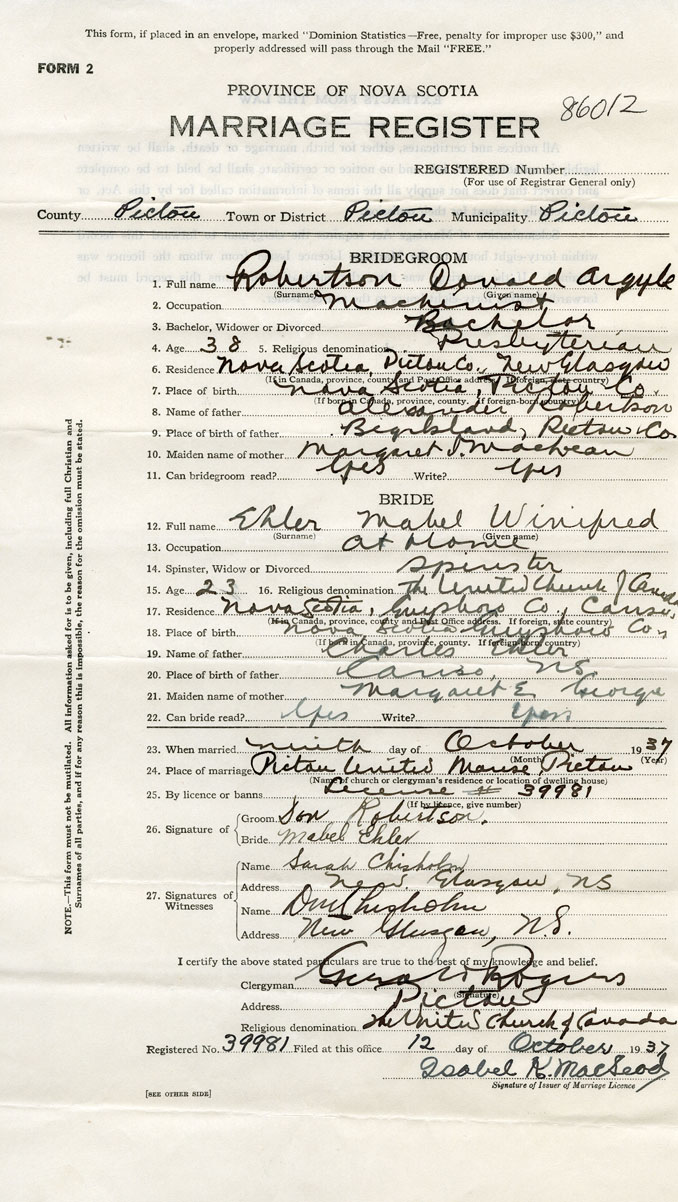 This form, if placed in an envelope, marked "Dominion Statistics—Free, penalty for improper use $300," and
properly addressed will pass through the Mail "FREE."
FORM 2
PROVINCE OF NOVA SCOTIA
86012
MARRIAGE REGISTER
REGISTERED Number
(For use of Registrar General only)
County Pictou Town or District Pictou Municipality Pictou
BRIDEGROOM
1. Full name Robertson Donald Argyle
(Surname) (Given name)
2. Occupation Machinist
3. Bachelor, Widower or Divorced Bachelor
4. Age 38 5. Religious denomination Presbyterian
6. Residence Nova Scotia, Pictou Co., New Glasgow
(If in Canada, province, county and Post Office address. If foreign, state country)
7. Place of birth Nova Scotia, Pictou Co.
(If born in Canada, province, county. If foreign-born, country)
8. Name of father Alexander Robertson
9. Place of father Big Island, Pictou Co
10. Maiden name of mother Margaret J. MacBean
11. Can bridegroom read? Yes Write? Yes
BRIDE
12. Full name Ehler Mabel Winifred
(Surname) (Given name)
13. Occupation at Home
14. Spinster, Widow or Divorced Spinster
15. Age 23 16. Religious denomination The United Church of Canada
17. Residence Nova Scotia, Guysboro Co., Canso,
(If in Canada, province, county and Post Office address. If foreign, state country)
18. Place of birth Nova Scotia Guysboro Co,
(If born in Canada, province, county. If foreign-born, country)
19. Name of father Charles Ehler
20. Place of birth of father Canso, NS
21. Maiden name of mother Margaret E. George
22. Can bride read? Yes Write? Yes
23. When married ninth day of October 1937
(Month) (Year)
24. Place of marriage Pictou United Manse Pictou
(Name of church or clergyman's residence or location of dwelling house)
25. By licence or banns License # 39981
(If by licence, give number)
26. Signature of
Groom Don Robertson.
Bride Mabel Ehler
27. Signatures of Witnesses
Name Sarah Chisholm
Address New Glasgow, NS
Name Chisholm
Address New Glasgow, N.S.
I certify the above stated particulars are true to the best of my knowledge and belief.
Clergyman Rogers
(Signature)
Address Pictou
Religious denomination The United Church of Canada
Registered No. 39981 Filed at this office 12 day of October 1937
Isabel K. MacLeod
Signature of Issuer of Marriage Licence
[SEE OTHER SIDE]
NOTE.—This form must not be mutilated. All information asked for is to be given, including full Christian and
Surnames of all parties, and if for any reason this is impossible, the reason for the omission must be stated.